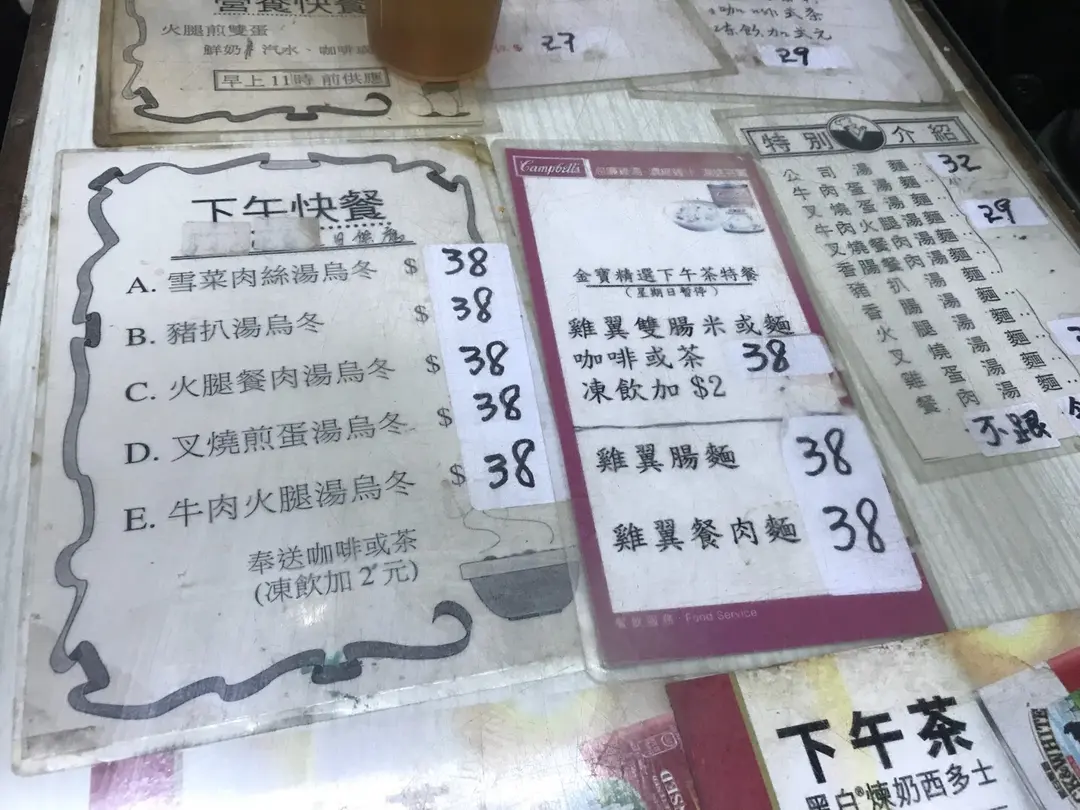 營養快餐
火腿煎雙蛋
鮮奶 汽水、咖啡或
早上11時前供應
27
咖啡或茶
凍飲加弍元
29
下午快餐
A. 雪菜肉絲湯烏冬 $ 38
B. 豬扒湯烏冬 $ 38
C. 火腿餐肉湯烏冬 $ 38
D. 叉燒煎蛋湯烏冬 $ 38
E. 牛肉火腿湯烏冬 $ 38
奉送咖啡或茶
(凍飲加2元)
Campbell's
金寶精選下午茶特餐
(星期日暫停)
雞翼雙腸米或麵
咖啡或茶 38
凍飲加 $2
雞翼腸麵 38
雞翼餐肉麵 38
餐飲服務 · Food Service
特別介紹
公司湯麵 32
牛肉蛋湯麵
叉燒蛋湯麵 29
牛肉火腿湯麵
叉燒餐肉湯麵
香腸餐肉湯麵
豬扒湯麵
香腸湯麵
火腿湯麵
叉燒湯麵
雞蛋湯麵
餐肉湯麵
不跟
下午茶
黑白®煉奶西多士